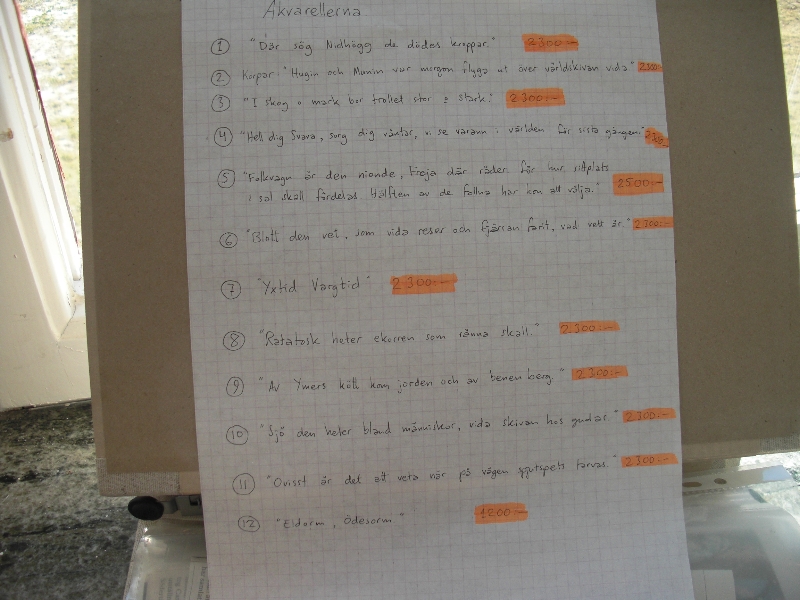 Akvarellerna
1 "Där sög Nidhögg de dödas kroppar." 2300:-
2 Korpar: "Hugin och Munin var morgon flyga ut över världskivan vida" 2300
3 "I skog o mark bor trollet stor o stark." 2300:-
4 "Hell dig Svava, sorg dig väntar, vi se varann i världen för sista gången."
5 "Folkvagn är den nionde, Freja där råder för hur sittplats
i sal skall fördelas. Hälften av de fallna har hon att välja." 2500:-
6 "Blott den vet, som vida reser och fjärran farit, vad vett är." 2300:-
7 "Yxtid Vargtid" 2300:-
8 "Ratatosk heter ekorren som ränna skall." 2300:-
9 "Av Ymers kött kom jorden och av benen berg." 2300:-
10 "Sjö den heter bland människor, vida skivan hos gudar." 2300:-
11 "Ovisst är det att veta när på vägen spjutspets tarvas." 2300:-
12 "Eldorm, Ödesorm" 1800:-